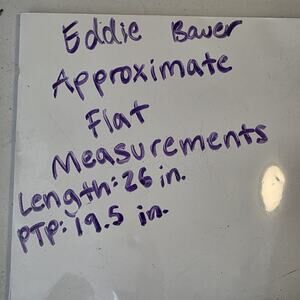 Eddie Bauer
Approximate
Flat
Measurements
Length: 26 in.
PTP: 19.5 in.